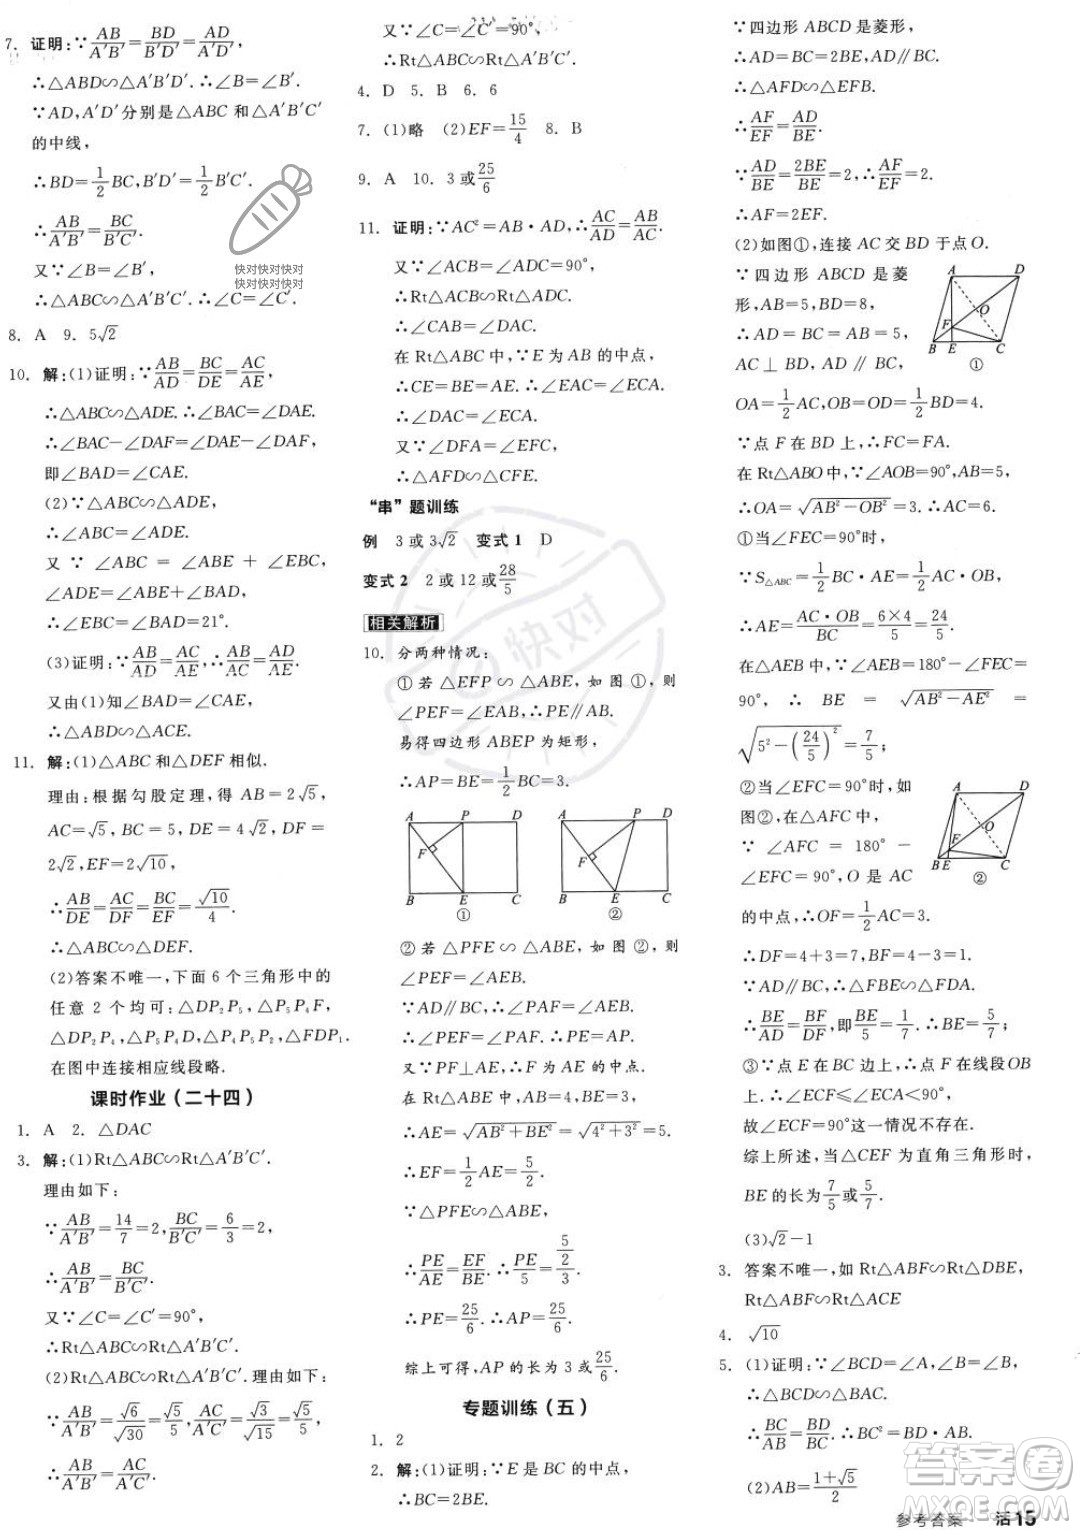 7. 证明:∵AB/A′B′=BD/B′D′=AD/A′D′,
∴△ABD∽△A′B′D′.∴∠B=∠B′.
∵AD,A′D′分别是△ABC 和△A′B′C′
的中线,
∴BD=1/2BC,B′D′=1/2B′C′.
∴AB/A′B′=BC/B′C′.
又∵∠B=∠B′,
∴△ABC∽△A′B′C′.∴∠C=∠C′.
8. A 9. 5√2
10. 解:(1)证明:∵AB/AD=BC/DE=AC/AE,
∴△ABC∽△ADE.∴∠BAC=∠DAE.
∴∠BAC−∠DAF=∠DAE−∠DAF,
即∠BAD=∠CAE.
(2)∵△ABC∽△ADE,
∴∠ABC=∠ADE.
又∵∠ABC=∠ABE+∠EBC,
∠ADE=∠ABE+∠BAD,
∴∠EBC=∠BAD=21°.
(3)证明:∵AB/AD=AC/AE,∴AB/AC=AD/AE.
又由(1)知∠BAD=∠CAE,
∴△ABD∽△ACE.
11. 解:(1)△ABC 和△DEF 相似.
理由:根据勾股定理,得 AB=2√5,
AC=√5,BC=5,DE=4√2,DF=
2√2,EF=2√10,
∴AB/DE=AC/DF=BC/EF=√10/4.
∴△ABC∽△DEF.
(2)答案不唯一,下面 6 个三角形中的
任意 2 个均可:△DP₂P₅,△P₅P₄F,
△DP₂P₄,△P₅P₄D,△P₂P₄P₅,△FDP₁.
在图中连接相应线段略.
课时作业(二十四)
1. A 2. △DAC
3. 解:(1)Rt△ABC∽Rt△A′B′C′.
理由如下:
∵AB/A′B′=14/7=2,BC/B′C′=6/3=2,
∴AB/A′B′=BC/B′C′.
又∵∠C=∠C′=90°,
∴Rt△ABC∽Rt△A′B′C′.
(2)Rt△ABC∽Rt△A′B′C′.理由如下:
∵AB/A′B′=√6/√30=√5/5,AC/A′C′=√3/√15=√5/5,
∴AB/A′B′=AC/A′C′.
又∵∠C=∠C′=90°,
∴Rt△ABC∽Rt△A′B′C′.
4. D 5. B 6. 6
7. (1)略 (2)EF=15/4 8. B
9. A 10. 3或25/6
11. 证明:∵AC²=AB·AD,∴AC/AD=AB/AC.
又∵∠ACB=∠ADC=90°,
∴Rt△ACB∽Rt△ADC.
∴∠CAB=∠DAC.
在 Rt△ABC 中,∵E 为 AB 的中点,
∴CE=BE=AE,∴∠EAC=∠ECA.
∴∠DAC=∠ECA.
又∵∠DFA=∠EFC,
∴△AFD∽△CFE.
“串”题训练
例 3 或 3√2 变式 1 D
变式 2 2 或 12 或28/5
相关解析
10. 分两种情况:
①若△EFP∽△ABE,如图①,则
∠PEF=∠EAB,∴PE∥AB.
易得四边形 ABEP 为矩形,
∴AP=BE=1/2BC=3;
A P D F B E C ①
A P D F B E C ②
②若△PFE∽△ABE,如图②,则
∠PEF=∠AEB.
∵AD∥BC,∴∠PAF=∠AEB.
∴∠PEF=∠PAF.∴PE=PA.
又∵PF⊥AE,∴F 为 AE 的中点.
在 Rt△ABE 中,AB=4,BE=3,
∴AE=√AB²+BE²=√4²+3²=5.
∴EF=1/2AE=5/2.
∵△PFE∽△ABE,
∴PE/AE=EF/BE.∴PE/5=5/2/3.
∴PE=25/6.∴AP=25/6.
综上可得,AP 的长为 3 或25/6.
专题训练(五)
1. 2
2. 解:(1)证明:∵E 是 BC 的中点,
∴BC=2BE.
∵四边形 ABCD 是菱形,
∴AD=BC=2BE,AD∥BC.
∴△AFD∽△EFB.
∴AF/EF=AD/BE.
∵AD/BE=2BE/BE=2,∴AF/EF=2.
∴AF=2EF.
(2)如图①,连接 AC 交 BD 于点 O.
∵四边形 ABCD 是菱
形,AB=5,BD=8,
∴AD=BC=AB=5,
AC⊥BD,AD∥BC,
A D O F B E C ①
OA=1/2AC,OB=OD=1/2BD=4.
∵点 F 在 BD 上,∴FC=FA.
在 Rt△AOB 中,∵∠AOB=90°,AB=5,
∴OA=√AB²−OB²=3.∴AC=6.
①当∠FEC=90°时,
∵S△ABC=1/2BC·AE=1/2AC·OB,
∴AE=AC·OB/BC=6×4/5=24/5.
在△AEB 中,∵∠AEB=180°−∠FEC
=90°,∴BE=√AB²−AE²=
√5²−(24/5)²=7/5;
②当∠EFC=90°时,如
图②,在△AFC 中,
∵∠AFC=180°−
∠EFC=90°,O 是 AC
A D O F B E C ②
的中点,∴OF=1/2AC=3.
∴DF=4+3=7,BF=4−3=1.
∵AD∥BC,∴△FBE∽△FDA.
∴BE/AD=BF/DF,即BE/5=1/7.∴BE=5/7;
③∵E 在 BC 边上,∴点 F 在线段OB
上.∴∠ECF≤∠BCA<90°,
故∠FCE=90°这一情况不存在.
综上所述,当△CEF 为直角三角形时,
BE 的长为7/5或5/7.
(3)√2−1
3. 答案不唯一,如 Rt△ABF∽Rt△DBE,
Rt△ABF∽Rt△ACE
4. √10
5. (1)证明:∵∠BCD=∠A,∠B=∠B,
∴△BCD∽△BAC.
∴BC/AB=BD/BC.∴BC²=AB·BD.
(2)AB=1+√5/2
快对快对快对
快对快对快对
快对
答案圈
MXQE.COM
参考答案 活15